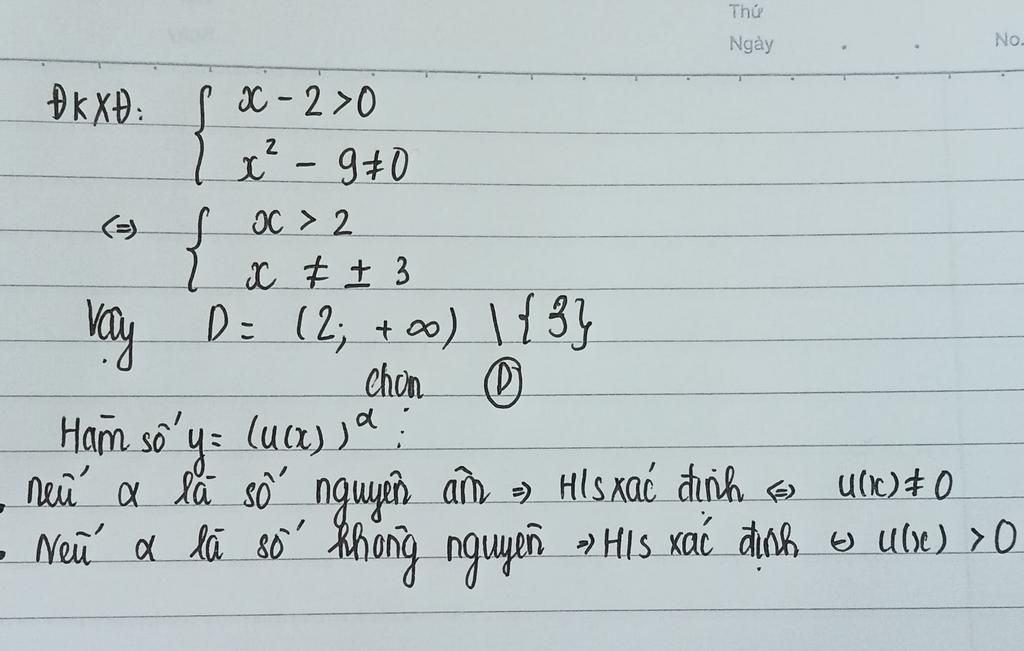 Thứ
Ngày . . No.
ĐKXĐ: { x - 2 > 0
x² - 9 ≠ 0
<=> { x > 2
x ≠ ± 3
Vậy D = (2; +∞) \ {3}
chọn Ⓓ
Hàm số y = (u(x))^α :
. nếu α là số nguyên âm => H/s xác định <=> u(x) ≠ 0
. Nếu α là số không nguyên => H/s xác định <=> u(x) > 0